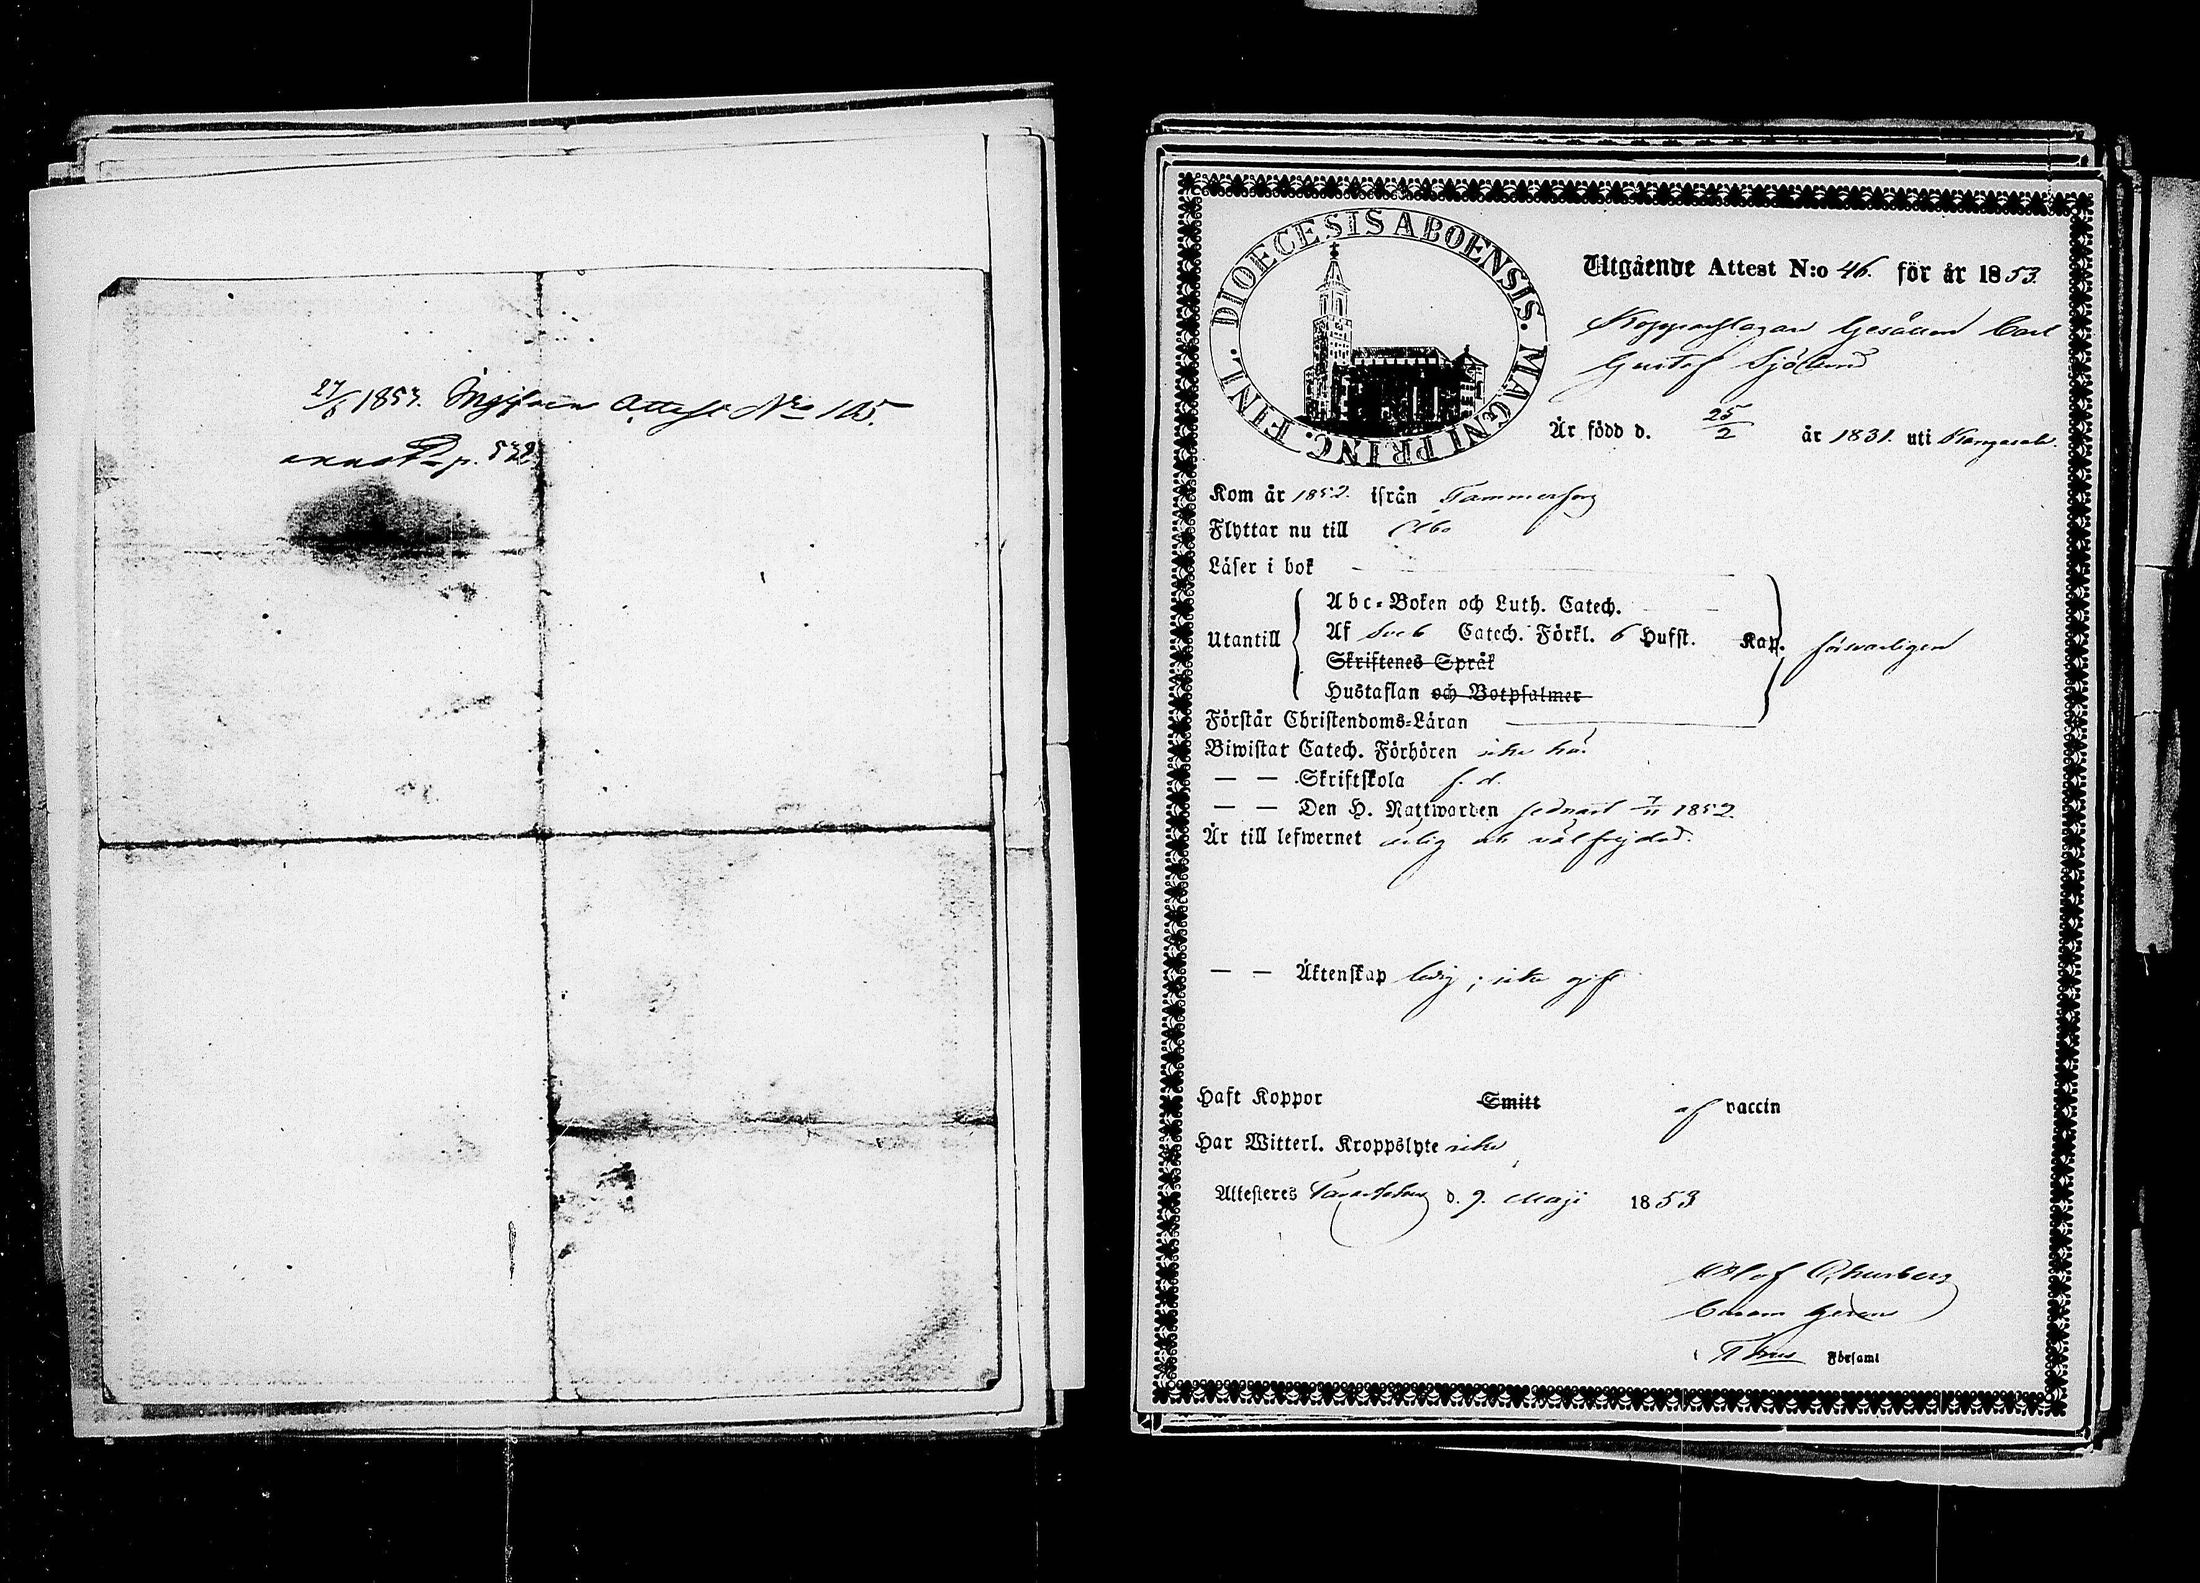 27/6 1853. Ingifven Attest No 105.
p. 572
DIOECESIS ABOENSIS. MAGNI PRINC. FINL.
Utgående Attest N:o 46. för år 1853.
Kopparslagare Gesällen Carl
Gustaf Sjölund
Är född d. 25/2 år 1831. uti Kangasala.
Kom år 1852. ifrån Tammerfors
Flyttar nu till Åbo
Läser i bok
Utantill
Abc-Boken och Luth. Catech.
Af Sveb Catech. Förkl. 6 Hufst. Kap. försvarligen
Skriftenes Språk
Hustaflan och Botpsalmer
Förstår Christendoms-Läran
Biwistat Catech. Förhören icke här.
— — Skriftskola f. d.
— — Den H. Nattwarden sednast 7/11 1852.
Är till lefwernet ärlig och välfrejdad.
— — Äktenskap ledig; icke gift
Haft Koppor Smitt af vaccin
Har Witterl. Kroppslyte icke
Attesteres Tavastehus d. 9. Maji 1853
Olof
Församl